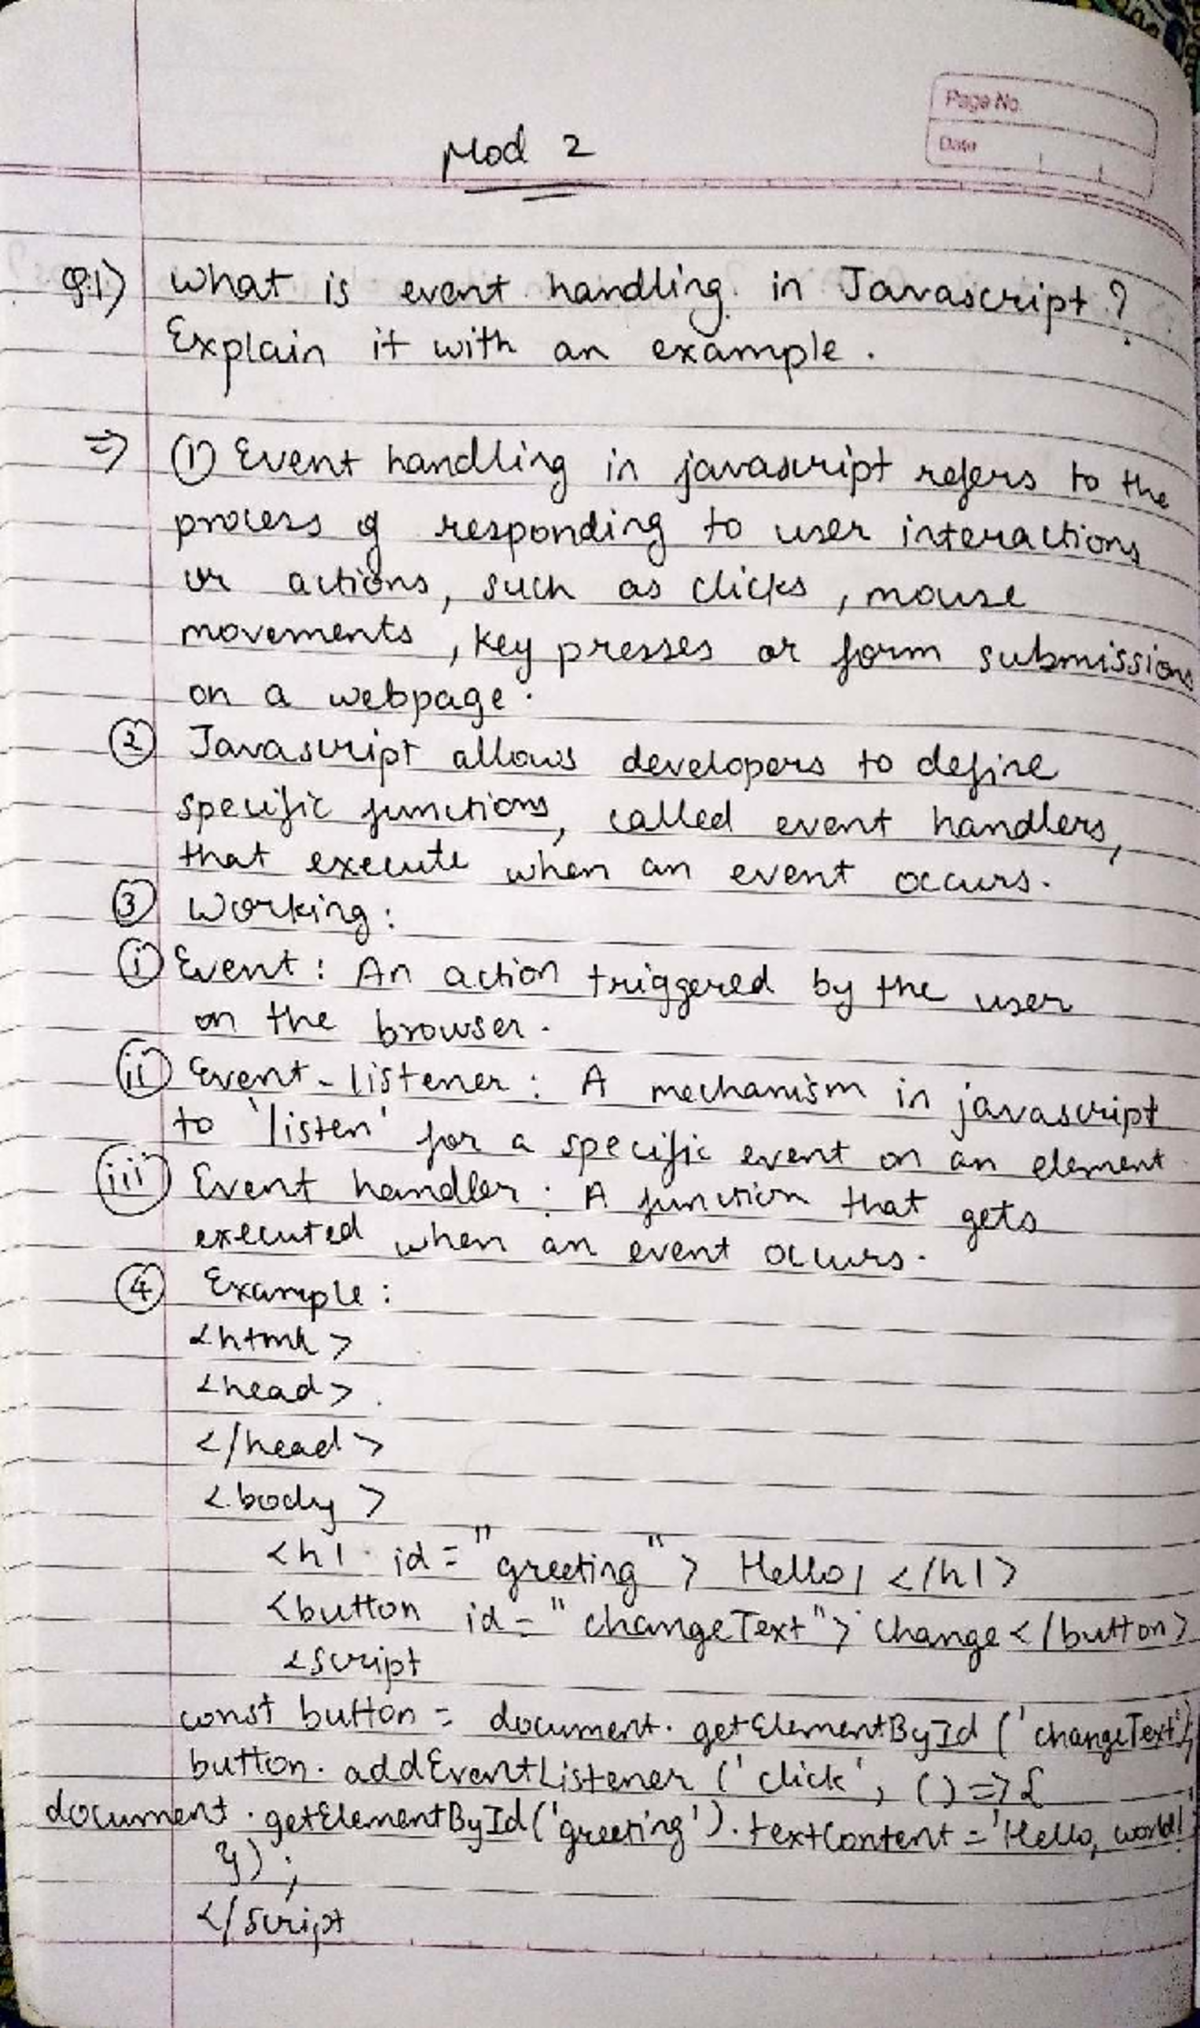 Page No.
Date
Mod 2
Q.1) What is event handling in Javascript?
Explain it with an example.
⇒ ① Event handling in javascript refers to the
process of responding to user interactions
or actions, such as clicks, mouse
movements, key presses or form submissions
on a webpage.
② Javascript allows developers to define
specific functions, called event handlers,
that execute when an event occurs.
③ Working:
(i) Event: An action triggered by the user
on the browser.
(ii) Event-listener: A mechanism in javascript
to 'listen' for a specific event on an element
(iii) Event handler: A function that gets
executed when an event occurs.
④ Example:
<html>
<head>
</head>
<body>
<h1 id="greeting"> Hello! </h1>
<button id="changeText"> Change</button>
<script
const button = document.getElementById('changeText');
button.addEventListener('click', () => {
document.getElementById('greeting').textContent='Hello, world!'
});
</script